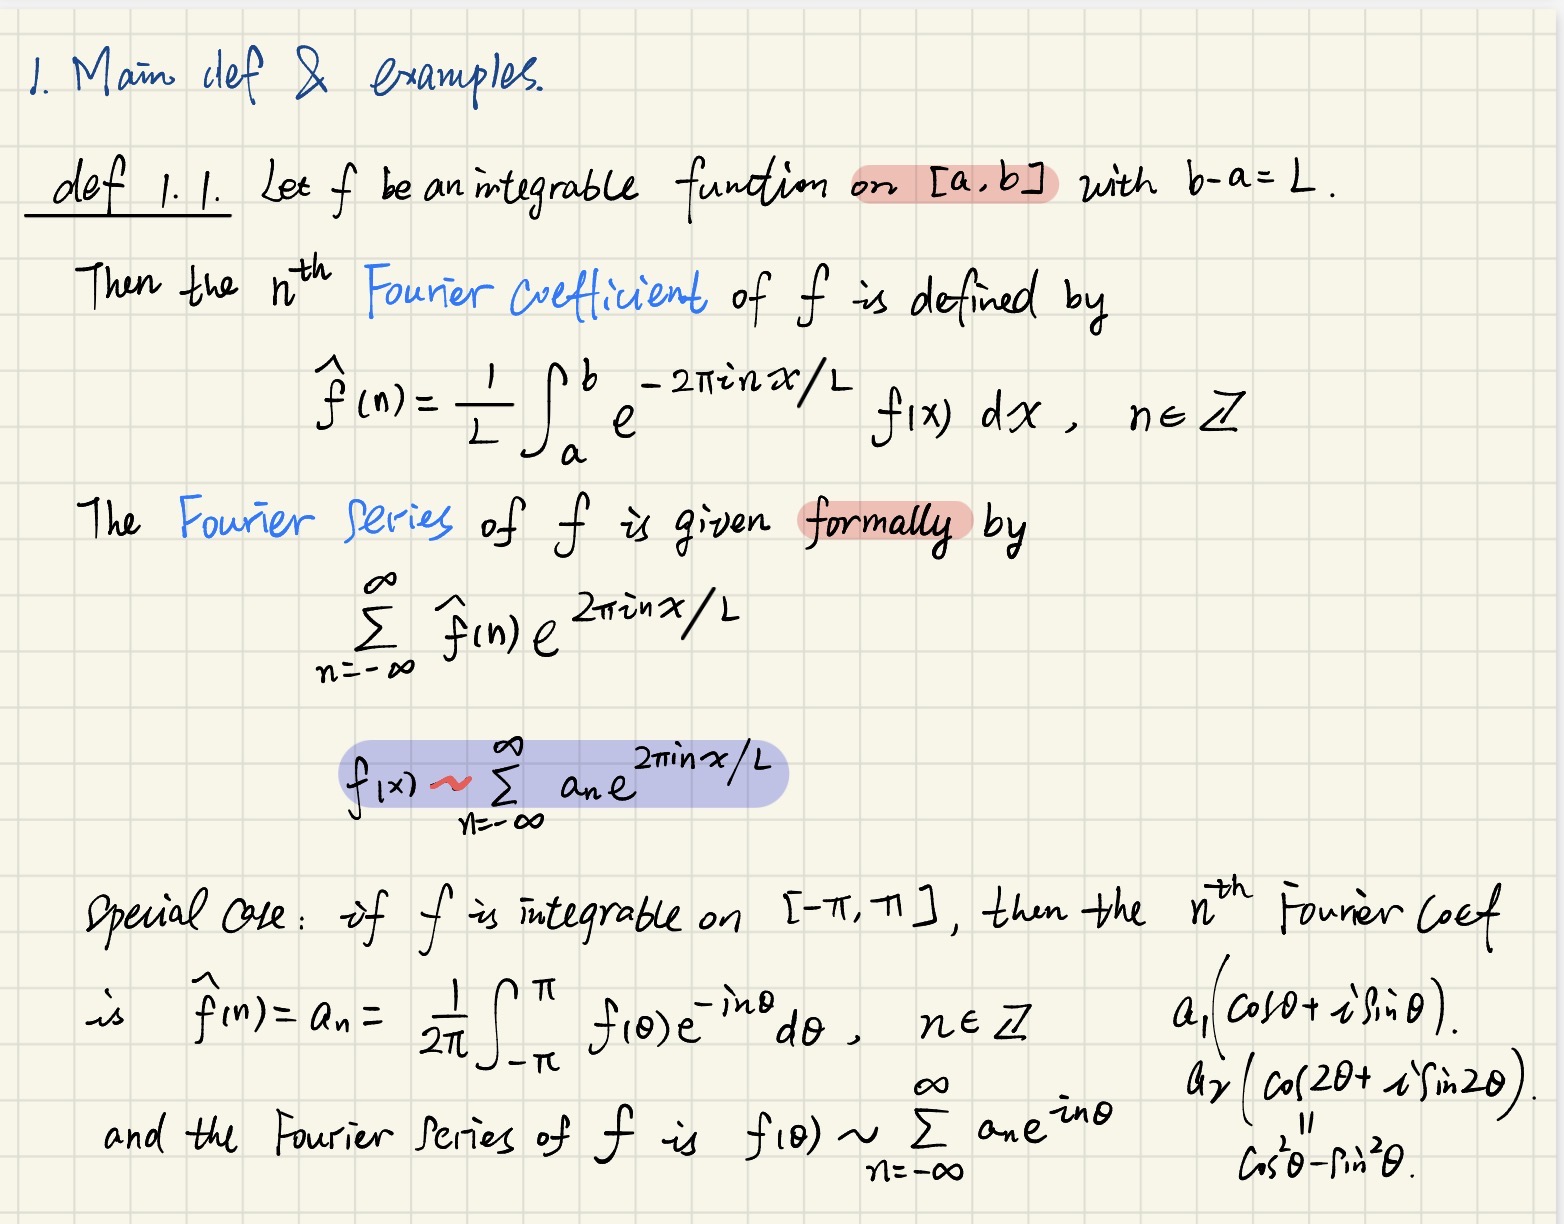 1. Main def & examples.
def 1.1. Let f be an integrable function on [a, b] with b-a = L.
Then the nᵗʰ Fourier coefficient of f is defined by
f̂(n) = 1/L ∫_a^b e^{-2πinx/L} f(x) dx, n ∈ ℤ
The Fourier series of f is given formally by
∑_{n=-∞}^{∞} f̂(n) e^{2πinx/L}
f(x) ~ ∑_{n=-∞}^{∞} aₙ e^{2πinx/L}
Special case: if f is integrable on [-π, π], then the nᵗʰ Fourier coef
is f̂(n) = aₙ = 1/2π ∫_{-π}^{π} f(θ) e^{-inθ} dθ, n ∈ ℤ
and the Fourier series of f is f(θ) ~ ∑_{n=-∞}^{∞} aₙ e^{inθ}
a₁(cosθ + i sinθ).
a₂(cos2θ + i sin2θ).
||
cos²θ - sin²θ.